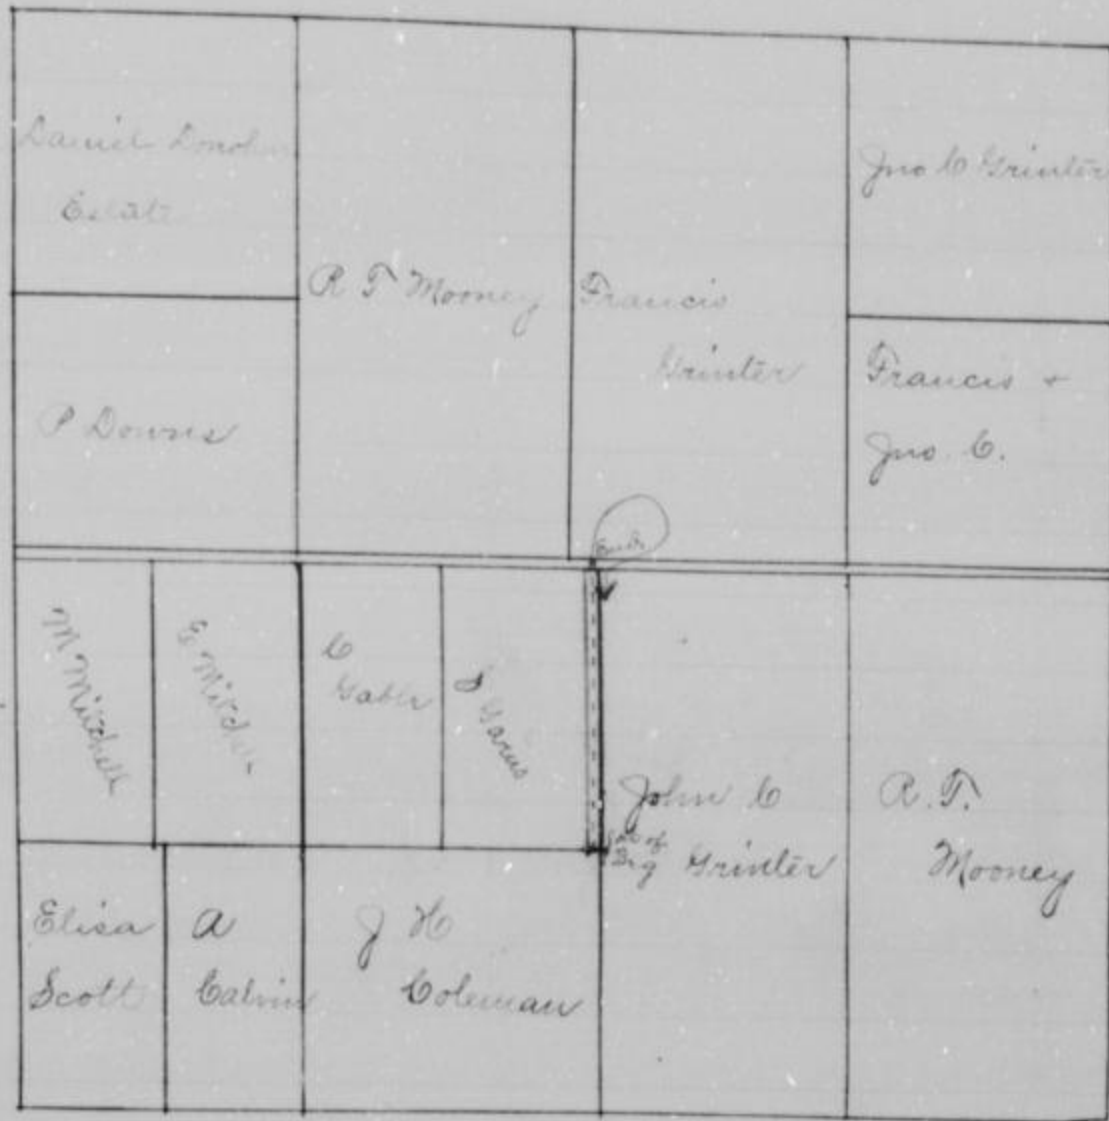 Daniel Donohue
Estate
R T Mooney
Francis
Grinter
Jno C Grinter
P Downs
Francis +
Jno. C.
Ends
M Mitchell
E Mitchell
C
Gabler
S
John C
Grinter
Pt of
Beg
R. T.
Mooney
Elisa
Scott
A
Calvin
J H
Coleman